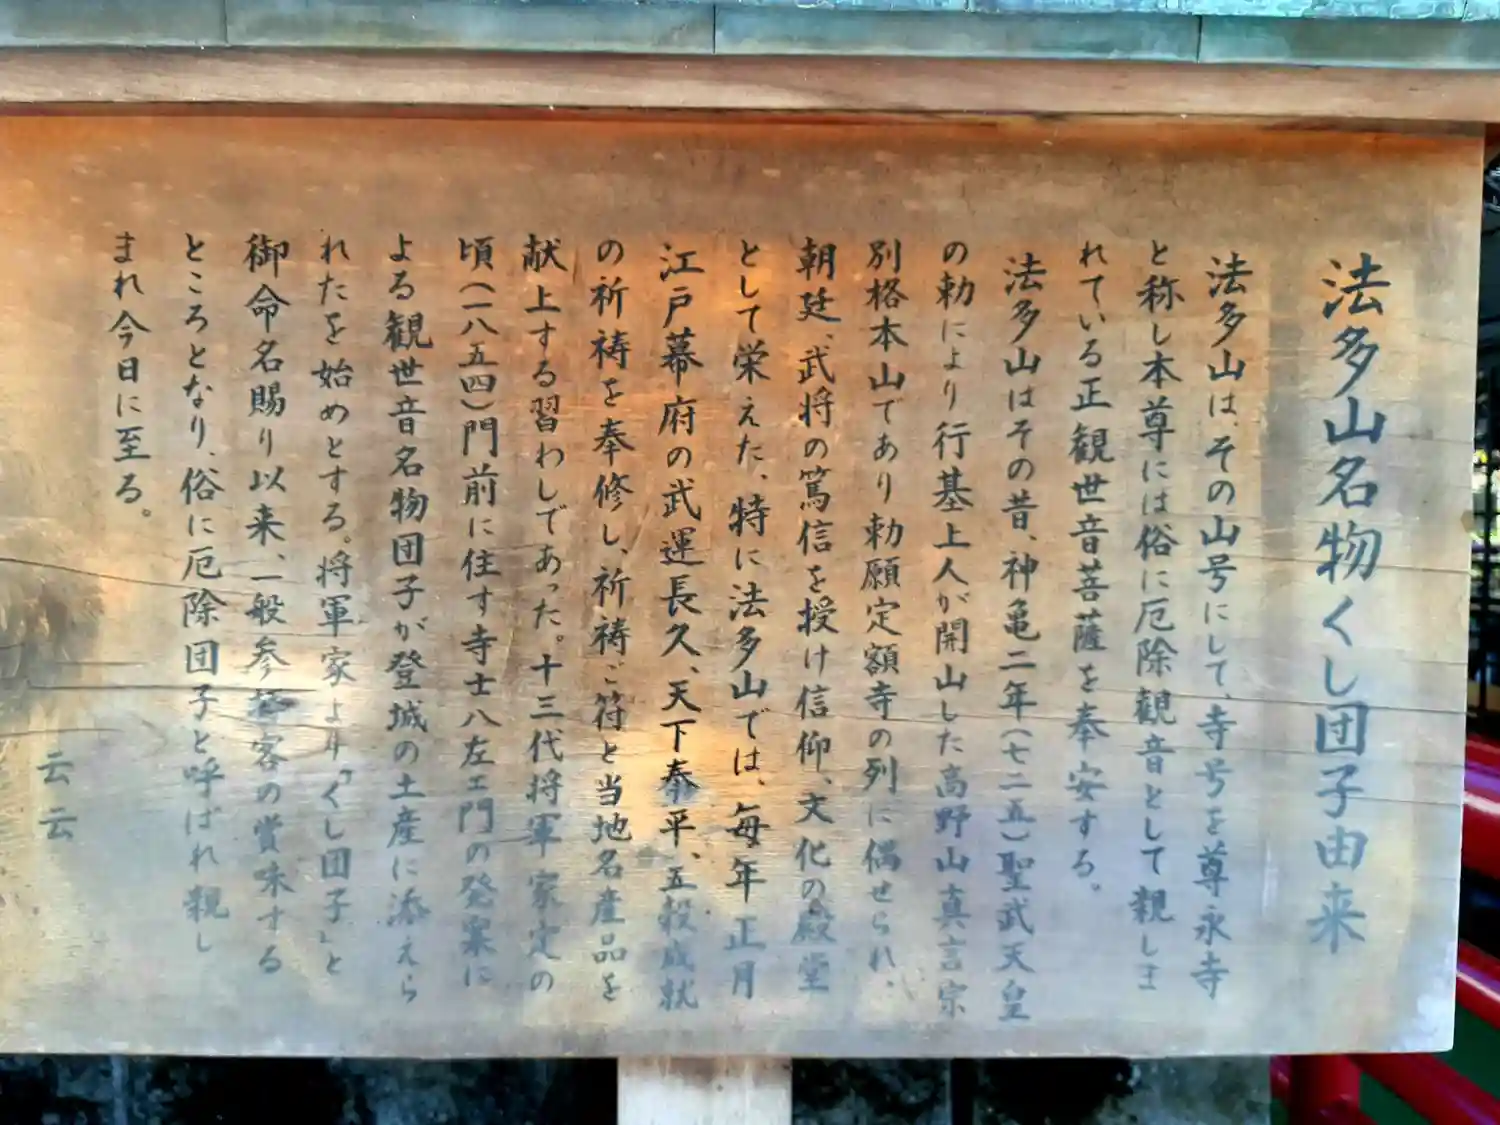 法多山名物くし団子由来
法多山は、その山号にして、寺号を尊永寺
と称し本尊には俗に厄除観音として親しま
れている正観世音菩薩を奉安する。
法多山はその昔、神亀二年(七二五)聖武天皇
の勅により行基上人が開山した高野山真言宗
別格本山であり勅願定額寺の列に偶せられ、
朝廷、武将の篤信を授け信仰、文化の殿堂
として栄えた、特に法多山では、毎年正月
江戸幕府の武運長久、天下泰平、五穀成就
の祈祷を奉修し、祈祷ご符と当地名産品を
献上する習わしであった。十三代将軍家定の
頃(一八五四)門前に住す寺士八左ェ門の発案に
よる観世音名物団子が登城の土産に添えら
れたを始めとする。将軍家より「くし団子」と
御命名賜り以来、一般参拝客の賞味する
ところとなり、俗に厄除団子と呼ばれ親し
まれ今日に至る。
云云